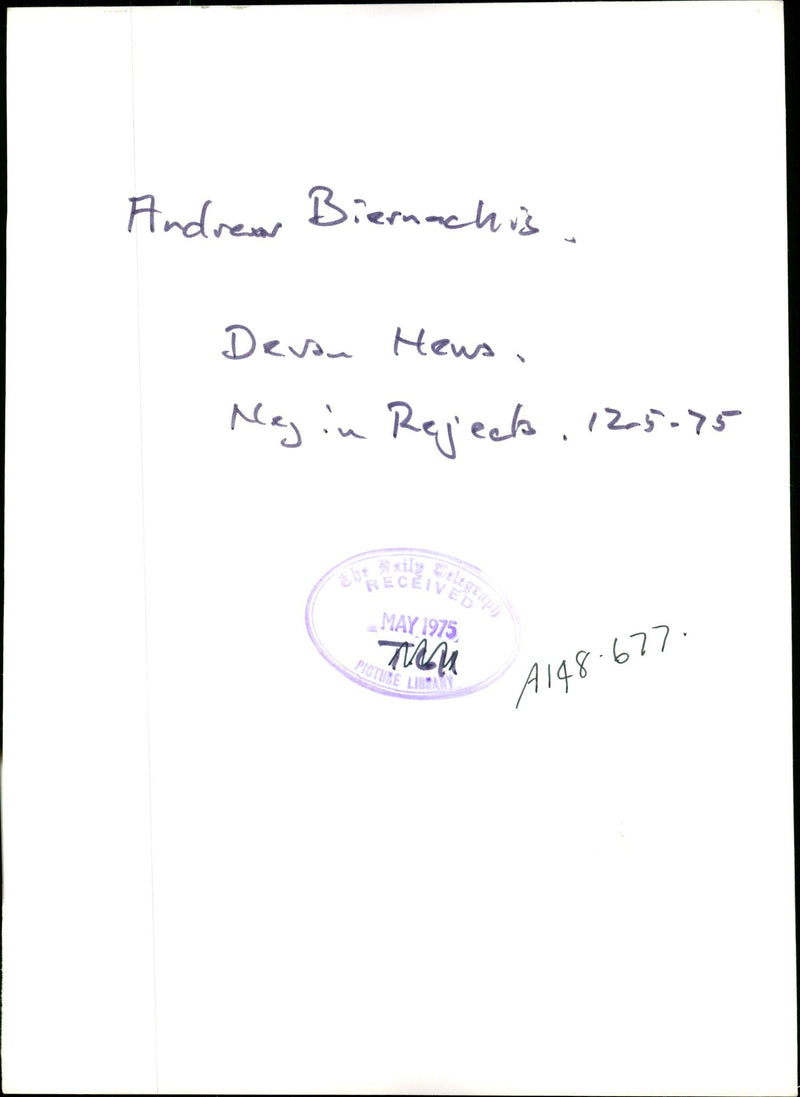 Andrew Biernackis.
Devon News.
Neg in Rejects. 12-5-75
The Daily Telegraph
RECEIVED
MAY 1975
PICTURE LIBRARY
A148.677.